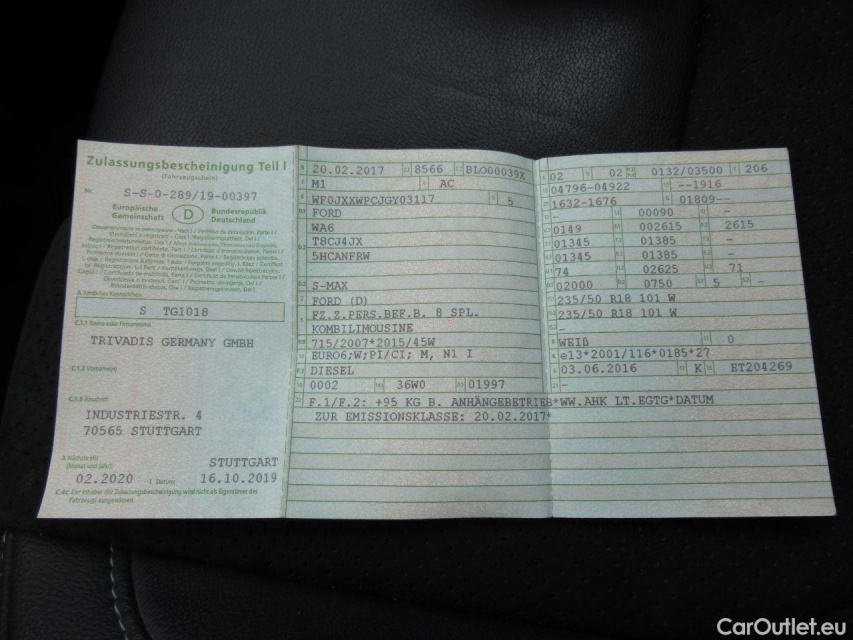 Zulassungsbescheinigung Teil I
(Fahrzeugschein)
Nr. S-S-0-289/19-00397
Europäische Gemeinschaft D Bundesrepublik Deutschland
A Amtliches Kennzeichen
S TGI018
C.1.1 Name oder Firmenname
TRIVADIS GERMANY GMBH
C.1.2 Vorname(n)
C.1.3 Anschrift
INDUSTRIESTR. 4
70565 STUTTGART
Nächste HU
(Monat und Jahr)
STUTTGART
02.2020 I Datum: 16.10.2019
C.4c Der Inhaber der Zulassungsbescheinigung wird nicht als Eigentümer des
Fahrzeugs ausgewiesen.
20.02.2017 8566 BLO00039X
M1 AC
WF0JXXWPCJGY03117 5
FORD
WA6
T8CJ4JX
5HCANFRW
S-MAX
FORD (D)
FZ.Z.PERS.BEF.B. 8 SPL.
KOMBILIMOUSINE
715/2007*2015/45W
EURO6;W;PI/CI; M, N1 I
DIESEL
0002 36W0 01997
F.1/F.2: +95 KG B. ANHÄNGEBETRIEB*WW.AHK LT.EGTG*DATUM
ZUR EMISSIONSKLASSE: 20.02.2017*
02 02 0132/03500 206
04796-04922 --1916
1632-1676 01809--
- 00090 -
0149 002615 2615
01345 01385 -
01345 01385 -
74 02625 71
02000 0750 5 -
235/50 R18 101 W
235/50 R18 101 W
-
WEIß 0
e13*2001/116*0185*27
03.06.2016 K ET204269
-
CarOutlet.eu